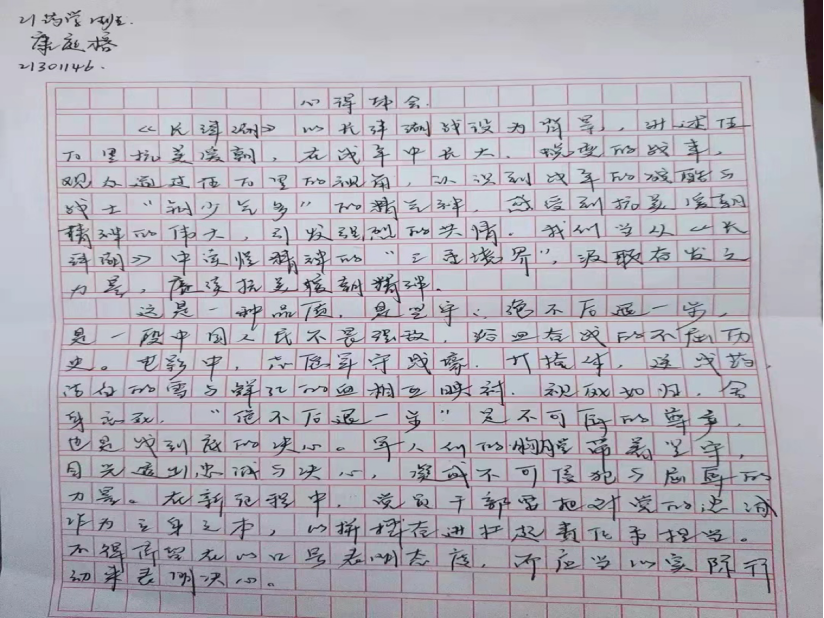 21药学
康庭榕
21301146.
心得体会.
《长津湖》以长津湖战役为背景，讲述伍
万里抗美援朝，在战争中长大、蜕变的故事，
观众通过伍万里的视角，认识到战争的残酷与
战士"钢少气多"的精气神，感受到抗美援朝
精神的伟大，引发强烈的共情。我们当从《长
津湖》中读懂精神的"三重境界"，汲取奋发之
力量，赓续抗美援朝精神.
这是一种品质，是坚守：绝不后退一步，
是一段中国人民不畏强敌，浴血奋战的不屈历
史。电影中，志愿军守战壕，打掩体，送战药，
洁白的雪与鲜红的血相互映衬.视死如归，舍
身忘死."绝不后退一步"是不可辱的尊严，
也是战到底的决心。军人们的胸膛带着坚守，
目光透出忠诚与决心，凝成不可侵犯与屈辱的
力量。在新征程中，党员干部要把对党的忠诚
作为立身之本，以拼搏奋进扛起责任和担当。
不得停留在以口号表明态度，而应当以实际行
动来表明决心。